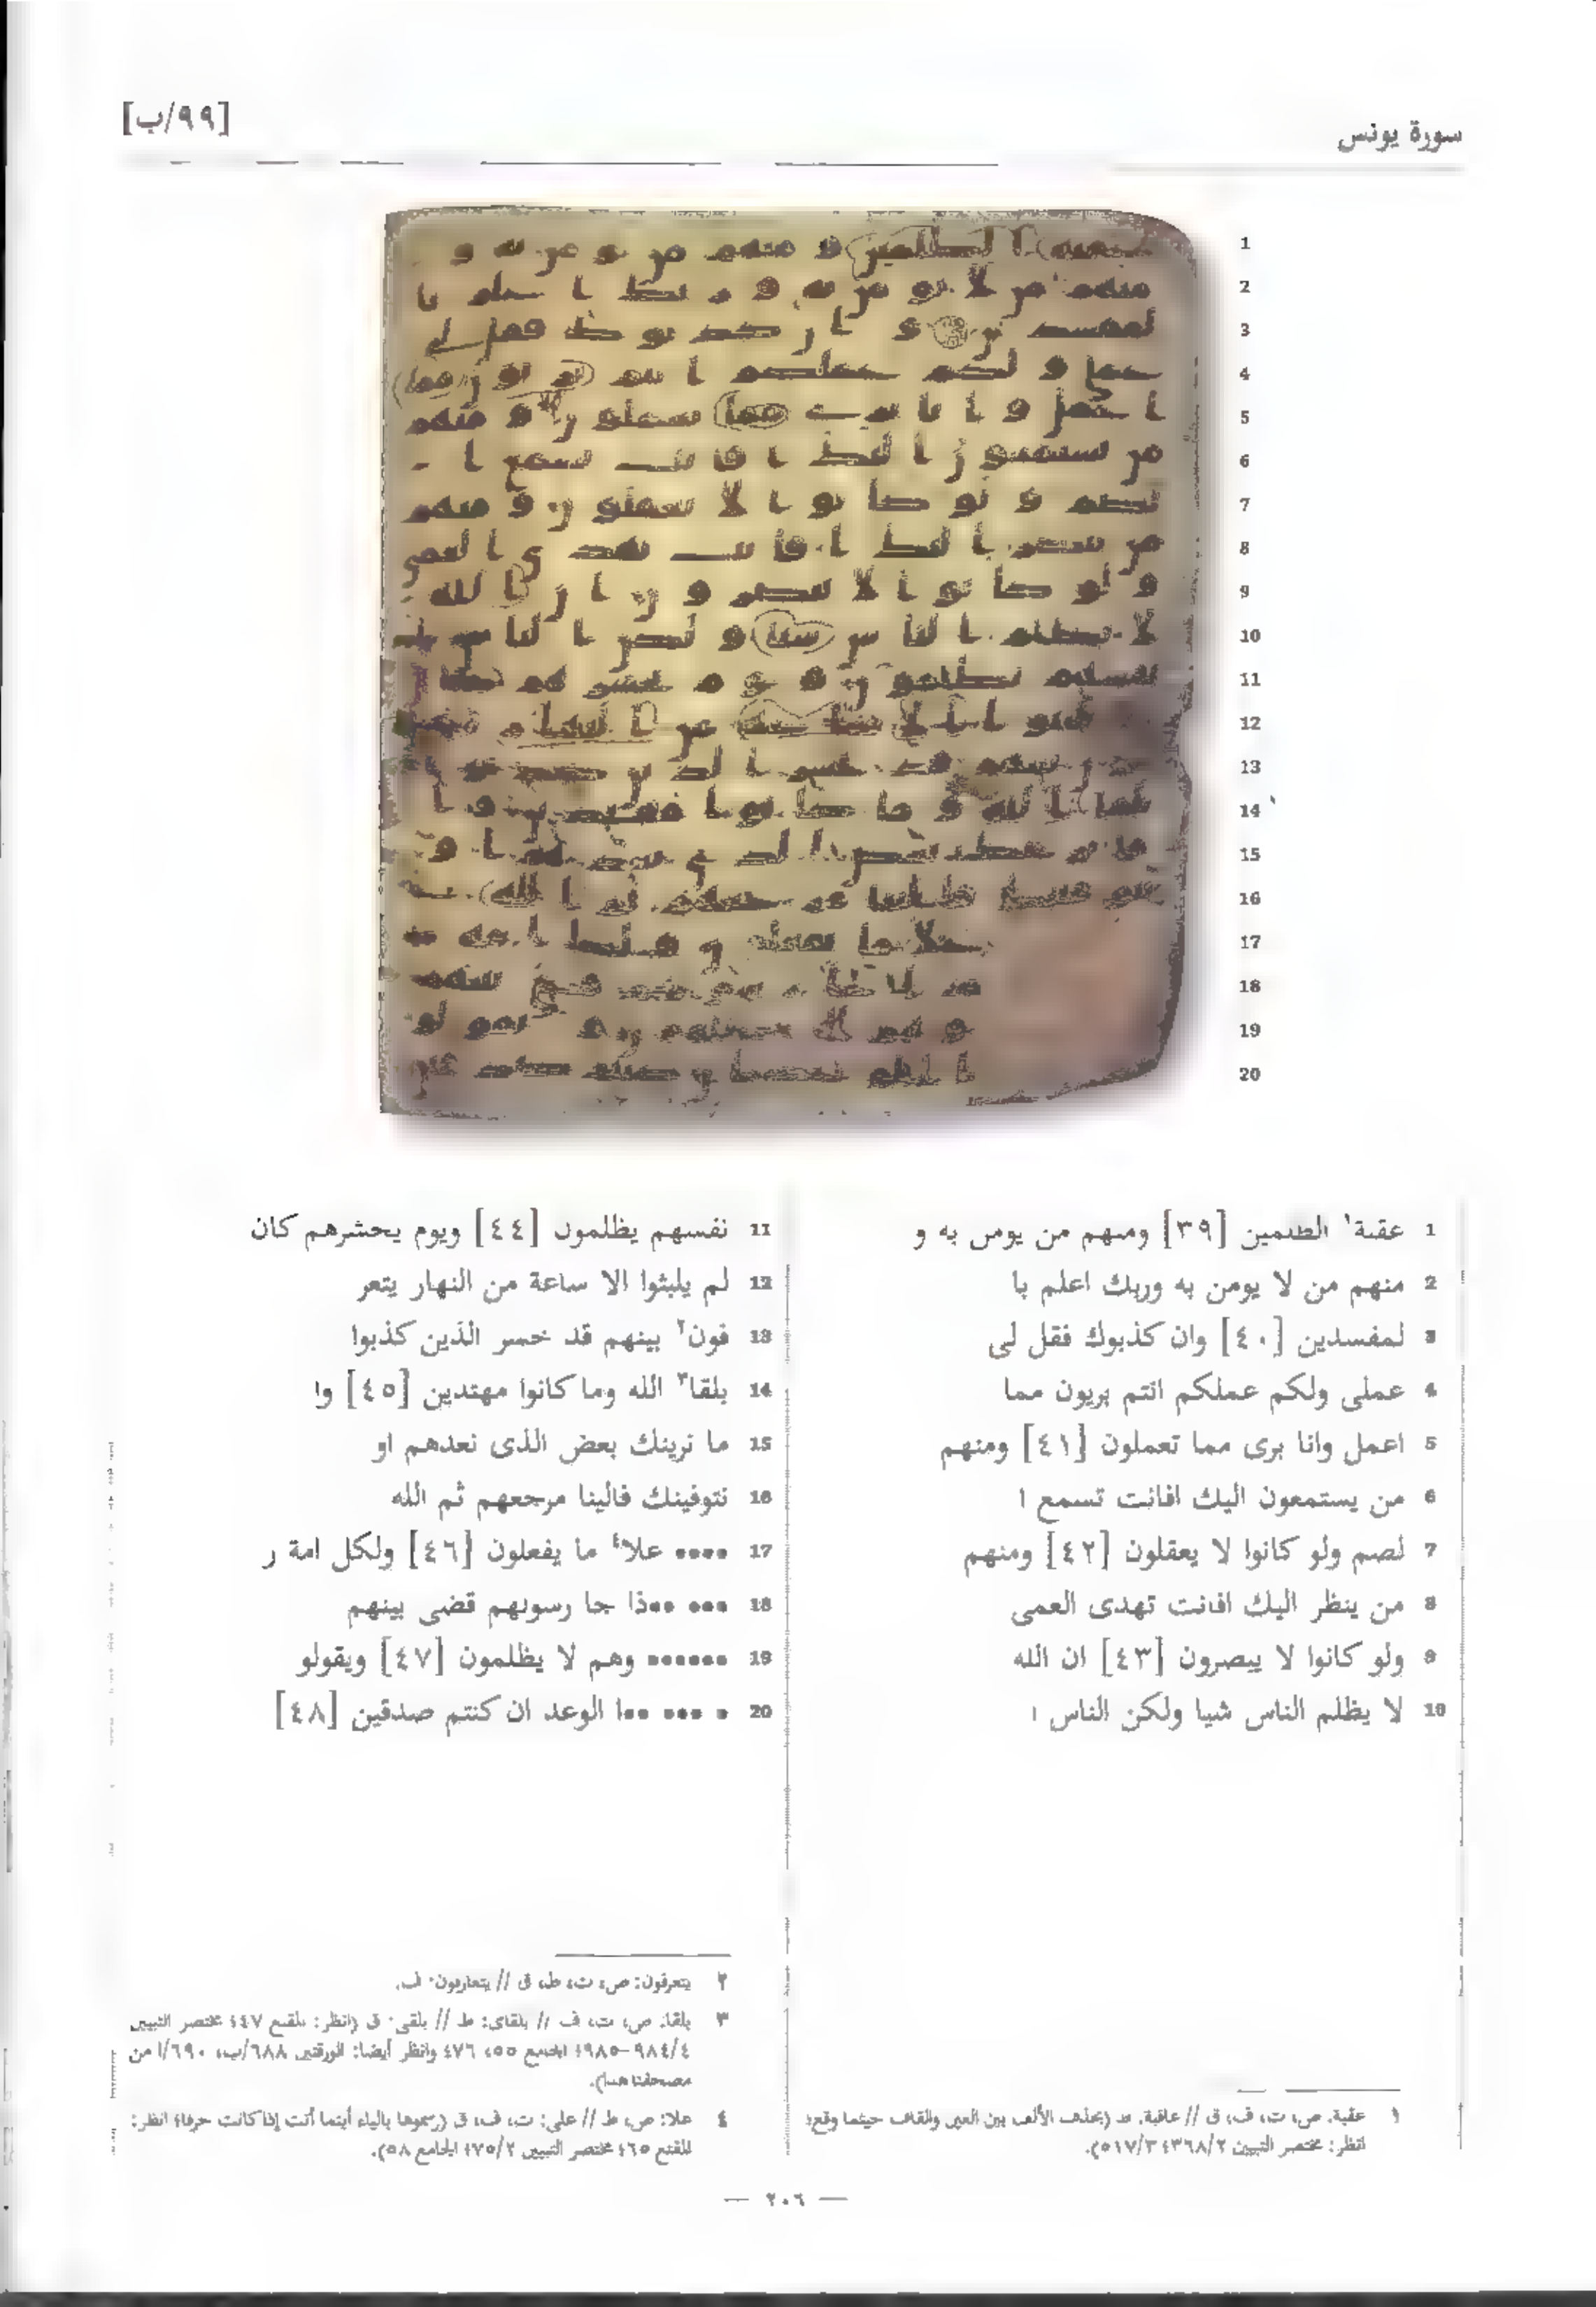 سورة يونس
[٩٩/ب]
1 عقبة١ الظلمين [٣٩] ومنهم من يومن به و
2 منهم من لا يومن به وربك اعلم با
3 لمفسدين [٤٠] وان كذبوك فقل لى
4 عملى ولكم عملكم انتم بريون مما
5 اعمل وانا برى مما تعملون [٤١] ومنهم
6 من يستمعون اليك افانت تسمع ا
7 لصم ولو كانوا لا يعقلون [٤٢] ومنهم
8 من ينظر اليك افانت تهدى العمى
9 ولو كانوا لا يبصرون [٤٣] ان الله
10 لا يظلم الناس شيا ولكن الناس ا
11 نفسهم يظلمون [٤٤] ويوم يحشرهم كان
12 لم يلبثوا الا ساعة من النهار يتعر
13 فون٢ بينهم قد خسر الذين كذبوا
14 بلقا٣ الله وما كانوا مهتدين [٤٥] وا
15 ما نرينك بعض الذى نعدهم او
16 نتوفينك فالينا مرجعهم ثم الله
17 •••• علا٤ ما يفعلون [٤٦] ولكل امة ر
18 ••• ••ذا جا رسولهم قضى بينهم
19 •••••• وهم لا يظلمون [٤٧] ويقولو
20 • ••• ••ا الوعد ان كنتم صدقين [٤٨]
١ عقبة: ص، ت، ف، ق // عاقبة: ط (بحذف الألف بين العين والقاف حيثما وقع؛
انظر: مختصر التبيين ٣٦٨/٢؛ ٥١٧/٣).
٢ يتعرفون: ص، ت، ط، ق // يتعارفون: ف.
٣ بلقا: ص، ت، ف // بلقاى: ط // بلقى: ق (انظر: المقنع ٤٤٧؛ مختصر التبيين
٩٨٤/٤-٩٨٥؛ الجامع ٥٥، ٤٧٦ وانظر أيضا: الورقتين ٦٨٨/ب، ٦٩٠/ا من
مصحفنا هذا).
٤ علا: ص، ط // على: ت، ف، ق (رسموها بالياء أينما أتت إذا كانت حرفا؛ انظر:
المقنع ٤٦٥؛ مختصر التبيين ٧٥/٢؛ الجامع ٥٨).
— ٢٠٦ —